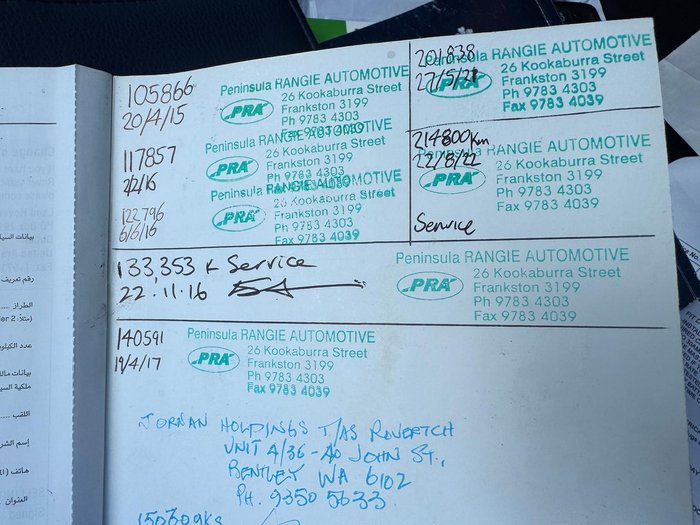 105866
20/4/15
Peninsula RANGIE AUTOMOTIVE
PRA
26 Kookaburra Street
Frankston 3199
Ph 9783 4303
Fax 9783 4039
117857
2/2/16
RANGIE AUTOMOTIVE
PRA
26 Kookaburra Street
Frankston 3199
Ph 9783 4303
122796
6/6/16
Peninsula RANGIE AUTOMOTIVE
PRA
26 Kookaburra Street
Frankston 3199
Ph 9783 4303
Fax 9783 4039
201838
27/5/21
Peninsula RANGIE AUTOMOTIVE
PRA
26 Kookaburra Street
Frankston 3199
Ph 9783 4303
Fax 9783 4039
214800Km
12/8/22
Service
Peninsula RANGIE AUTOMOTIVE
PRA
26 Kookaburra Street
Frankston 3199
Ph 9783 4303
Fax 9783 4039
133,353 k Service
22.11.16
Peninsula RANGIE AUTOMOTIVE
PRA
26 Kookaburra Street
Frankston 3199
Ph 9783 4303
Fax 9783 4039
140591
19/4/17
Peninsula RANGIE AUTOMOTIVE
PRA
26 Kookaburra Street
Frankston 3199
Ph 9783 4303
Fax 9783 4039
JORNAN HOLDINGS T/AS ROVERTCH
UNIT 4/36-40 JOHN ST.,
BENTLEY WA 6102
PH. 9350 5633
بيانات السيا
رقم تعريف
الطراز
عدد الكيلو
بيانات مالك
ملكية السيا
اللقب
إسم الشر
هاتف
العنوان